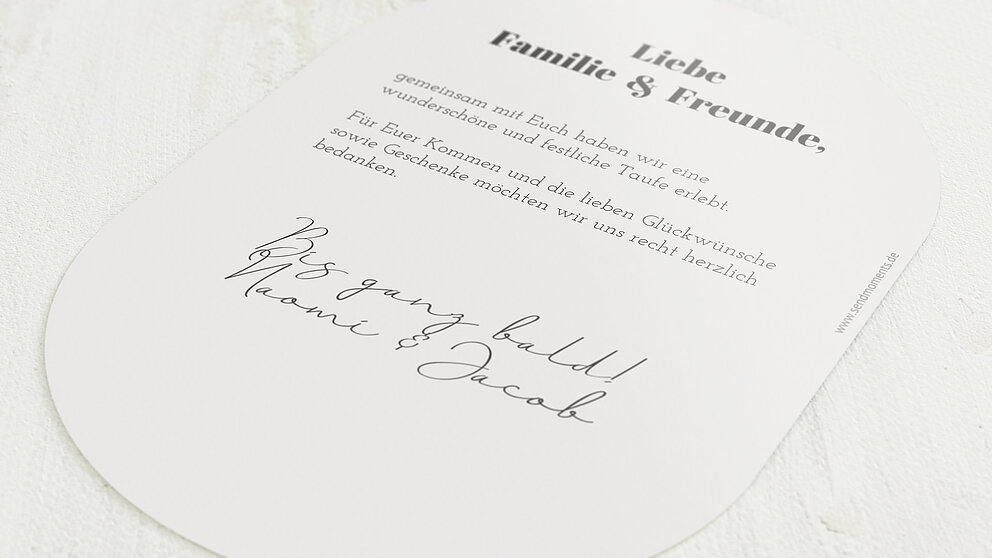 Liebe
Familie & Freunde,
gemeinsam mit Euch haben wir eine
wunderschöne und festliche Taufe erlebt.
Für Euer Kommen und die lieben Glückwünsche
sowie Geschenke möchten wir uns recht herzlich
bedanken.
Bis ganz bald!
Naomi & Jacob
www.sendmoments.de